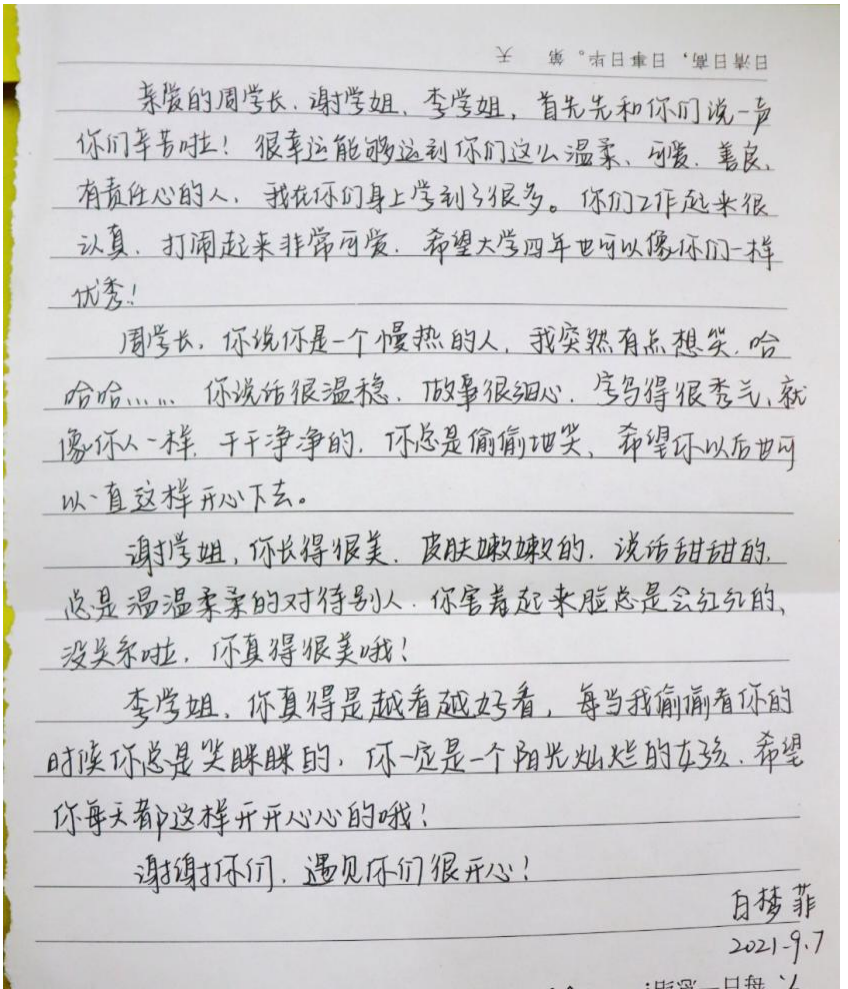 日清日高，日事日毕。第 天
亲爱的周学长、谢学姐、李学姐，首先先和你们说一声
你们辛苦啦！很幸运能够遇到你们这么温柔、可爱、善良、
有责任心的人，我在你们身上学到了很多。你们工作起来很
认真，打闹起来非常可爱，希望大学四年也可以像你们一样
优秀！
周学长，你说你是一个慢热的人，我突然有点想笑，哈
哈哈…… 你说话很温稳，做事很细心，字写得很秀气，就
像你人一样，干干净净的，你总是偷偷地笑，希望你以后也可
以一直这样开心下去。
谢学姐，你长得很美，皮肤嫩嫩的，说话甜甜的，
总是温温柔柔的对待别人，你害羞起来脸总是会红红的，
没关系啦，你真得很美哦！
李学姐，你真得是越看越好看，每当我偷偷看你的
时候你总是笑眯眯的，你一定是一个阳光灿烂的女孩，希望
你每天都这样开开心心的哦！
谢谢你们，遇见你们很开心！
白梦菲
2021.9.7